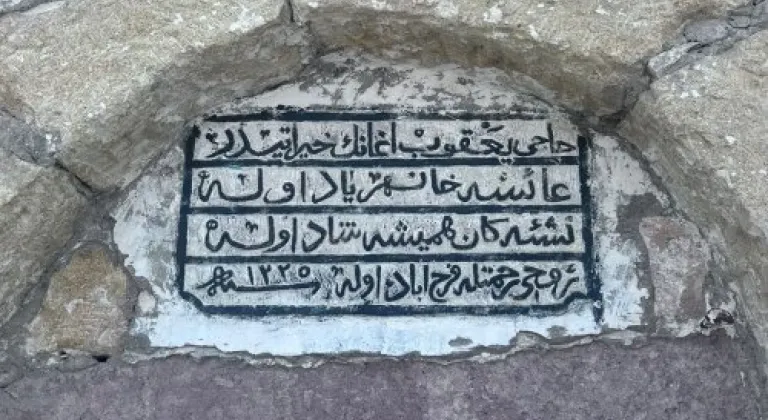 حاجى يعقوب اغانك خيراتيدر
عائشه خانم هر ياد اوله
تشنه كان هميشه شاد اوله
زوجى رحمتله فرح اباد اوله سنه ١٢٢٥